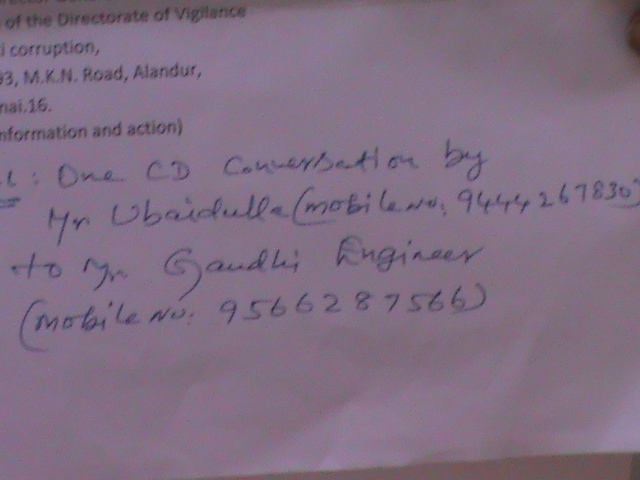 of the Directorate of Vigilance
i corruption,
93, M.K.N. Road, Alandur,
nai.16.
nformation and action)
: One CD Conversation by
Mr Ubaidulla (mobile no: 9444267830)
to Mr. Gandhi Engineer
(mobile No: 9566287566)